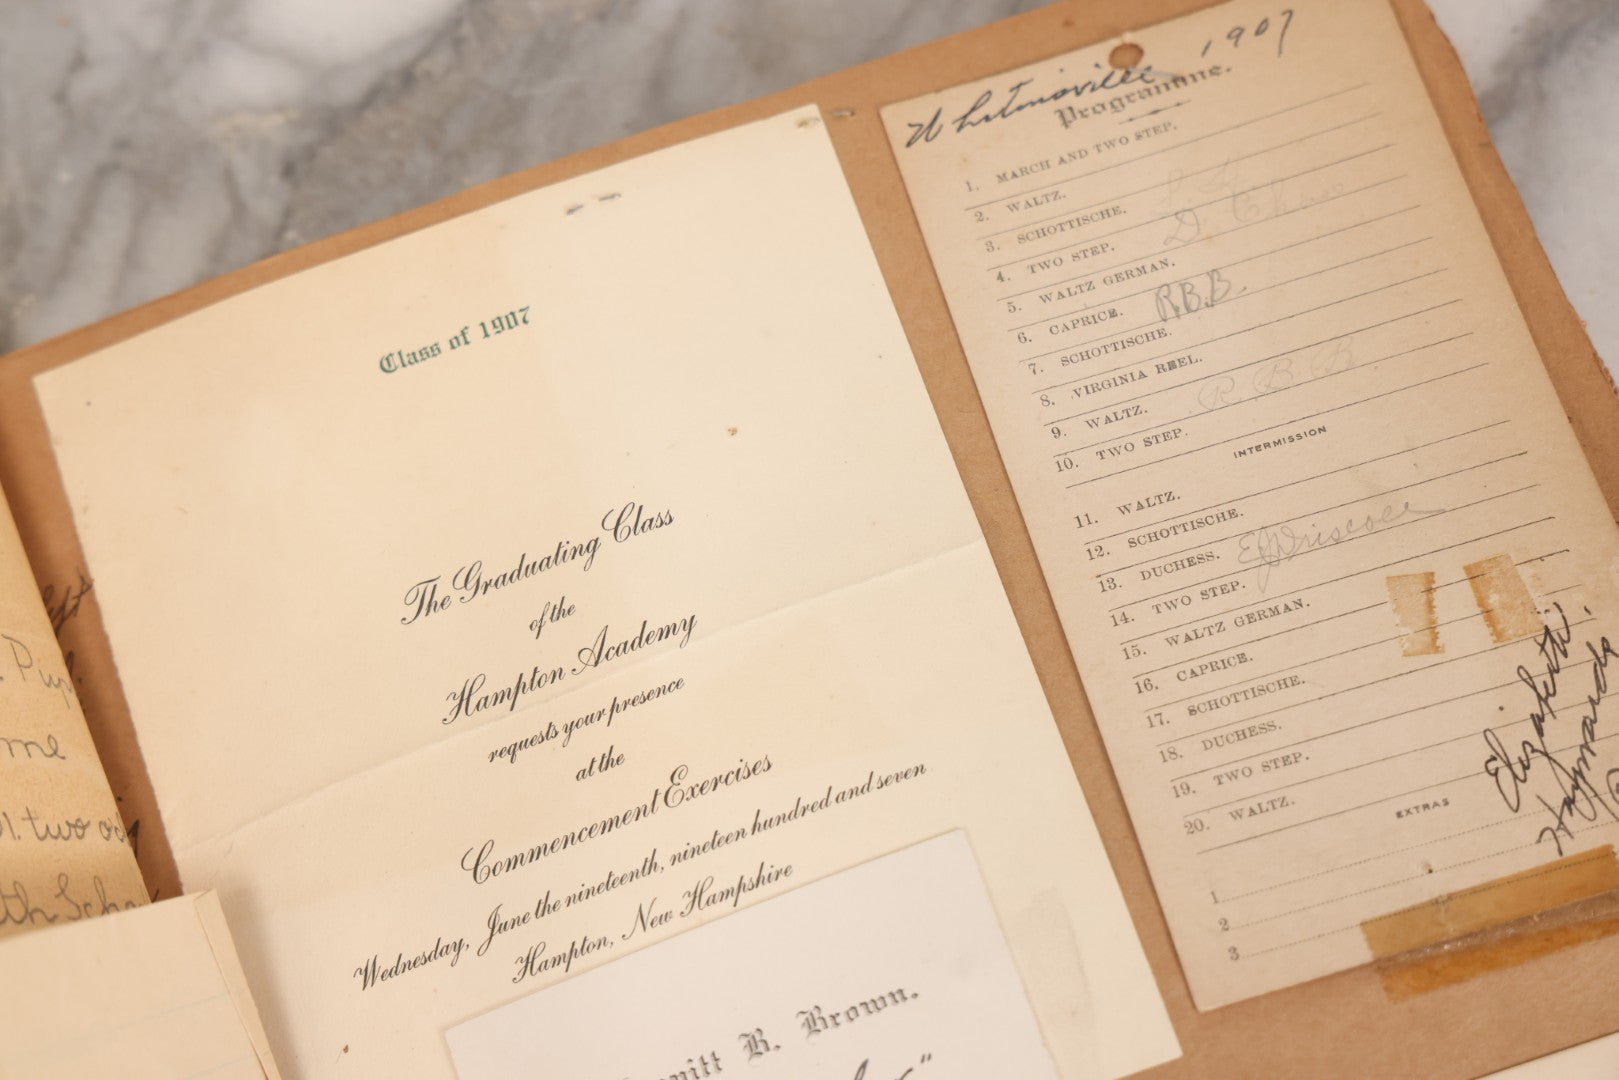 Class of 1907
The Graduating Class
of the
Hampton Academy
requests your presence
at the
Commencement Exercises
Wednesday, June the nineteenth, nineteen hundred and seven
Hampton, New Hampshire
B. Brown.
Whitinsville 1907
Programme.
1. MARCH AND TWO STEP.
2. WALTZ.
3. SCHOTTISCHE.
4. TWO STEP. D.
5. WALTZ GERMAN.
6. CAPRICE. R.B.B.
7. SCHOTTISCHE.
8. VIRGINIA REEL.
9. WALTZ. R. B. B.
10. TWO STEP.
INTERMISSION
11. WALTZ.
12. SCHOTTISCHE.
13. DUCHESS. Driscoll
14. TWO STEP.
15. WALTZ GERMAN.
16. CAPRICE.
17. SCHOTTISCHE.
18. DUCHESS.
19. TWO STEP.
20. WALTZ.
EXTRAS
1
2
3
Elizabeth
me
two